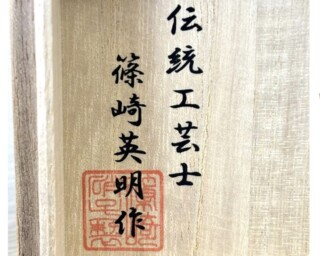 伝統工芸士
篠崎英明作